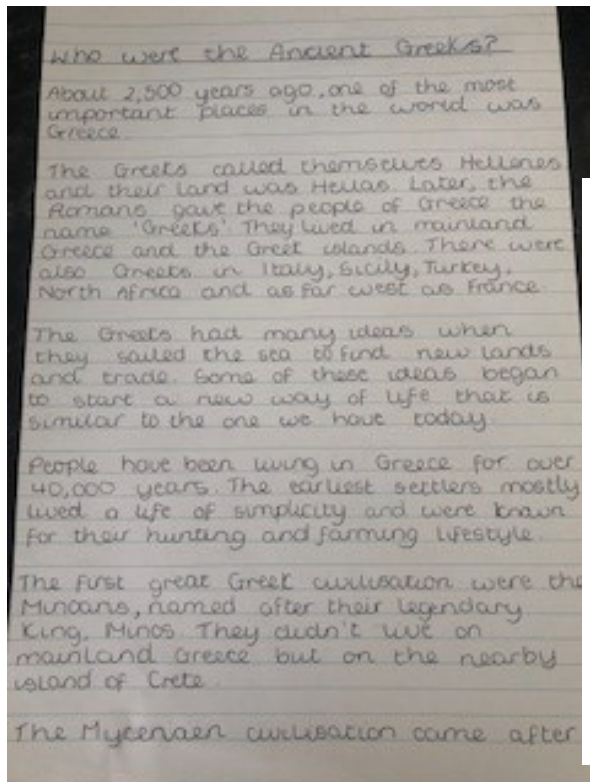 Who were the Ancient Greeks?
About 2,500 years ago, one of the most
important places in the world was
Greece.
The Greeks called themselves Hellenes
and their land was Hellas. Later, the
Romans gave the people of Greece the
name 'Greeks'. They lived in mainland
Greece and the Greek islands. There were
also Greeks in Italy, Sicily, Turkey,
North Africa and as far west as France.
The Greeks had many ideas when
they sailed the sea to find new lands
and trade. Some of these ideas began
to start a new way of life that is
similar to the one we have today.
People have been living in Greece for over
40,000 years. The earliest settlers mostly
lived a life of simplicity and were known
for their hunting and farming lifestyle.
The first great Greek civilisation were the
Minoans, named after their legendary
King, Minos. They didn't live on
mainland Greece but on the nearby
island of Crete.
The Mycenaen civilisation came after